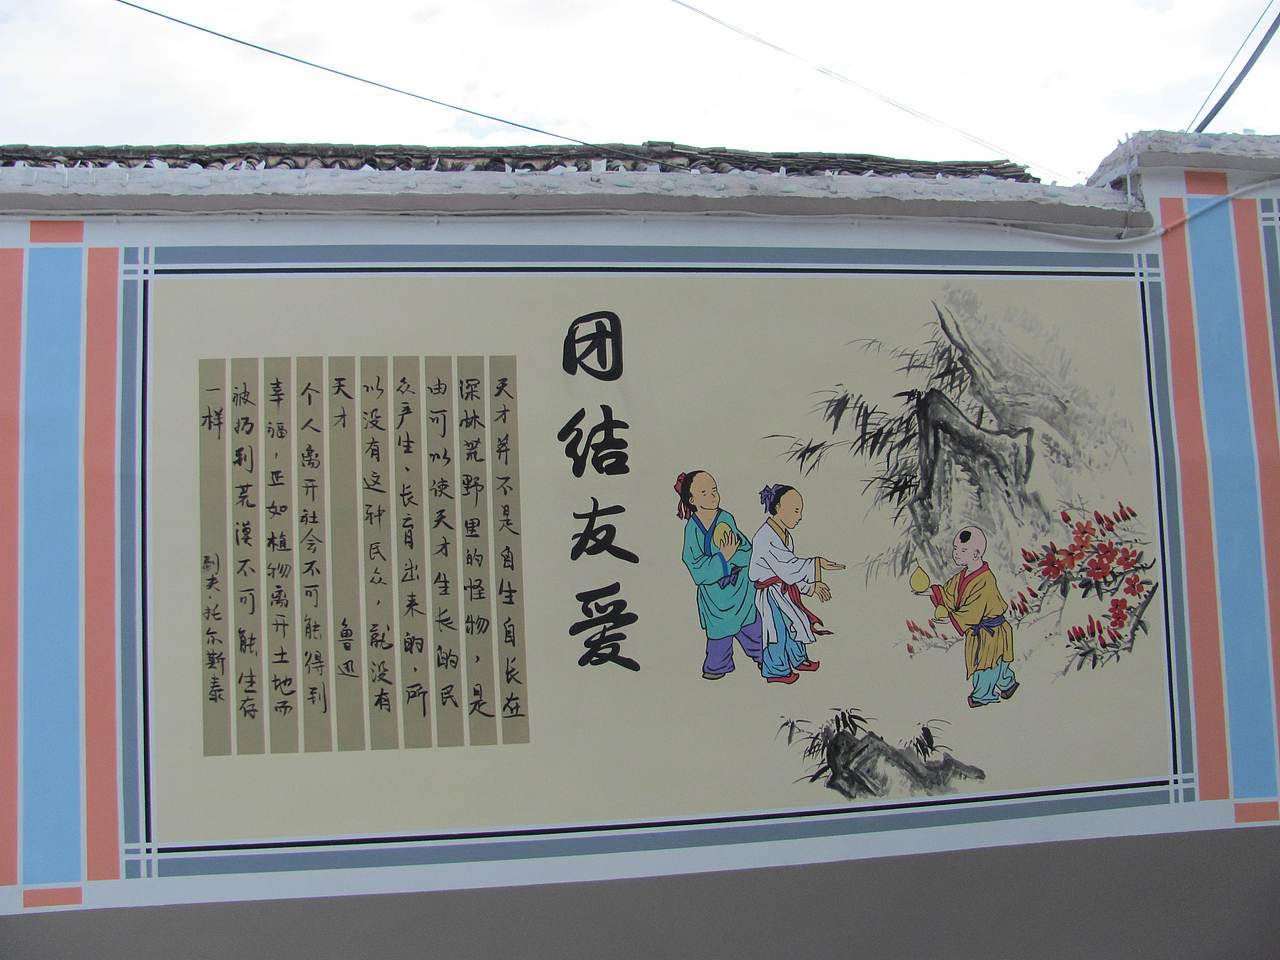 团结友爱
天才并不是自生自长在
深林荒野里的怪物，是
由可以使天才生长的民
众产生、长育出来的，所
以没有这种民众，就没有
天才 鲁迅
个人离开社会不可能得到
幸福，正如植物离开土地而
被扔到荒漠不可能生存
一样 列夫·托尔斯泰